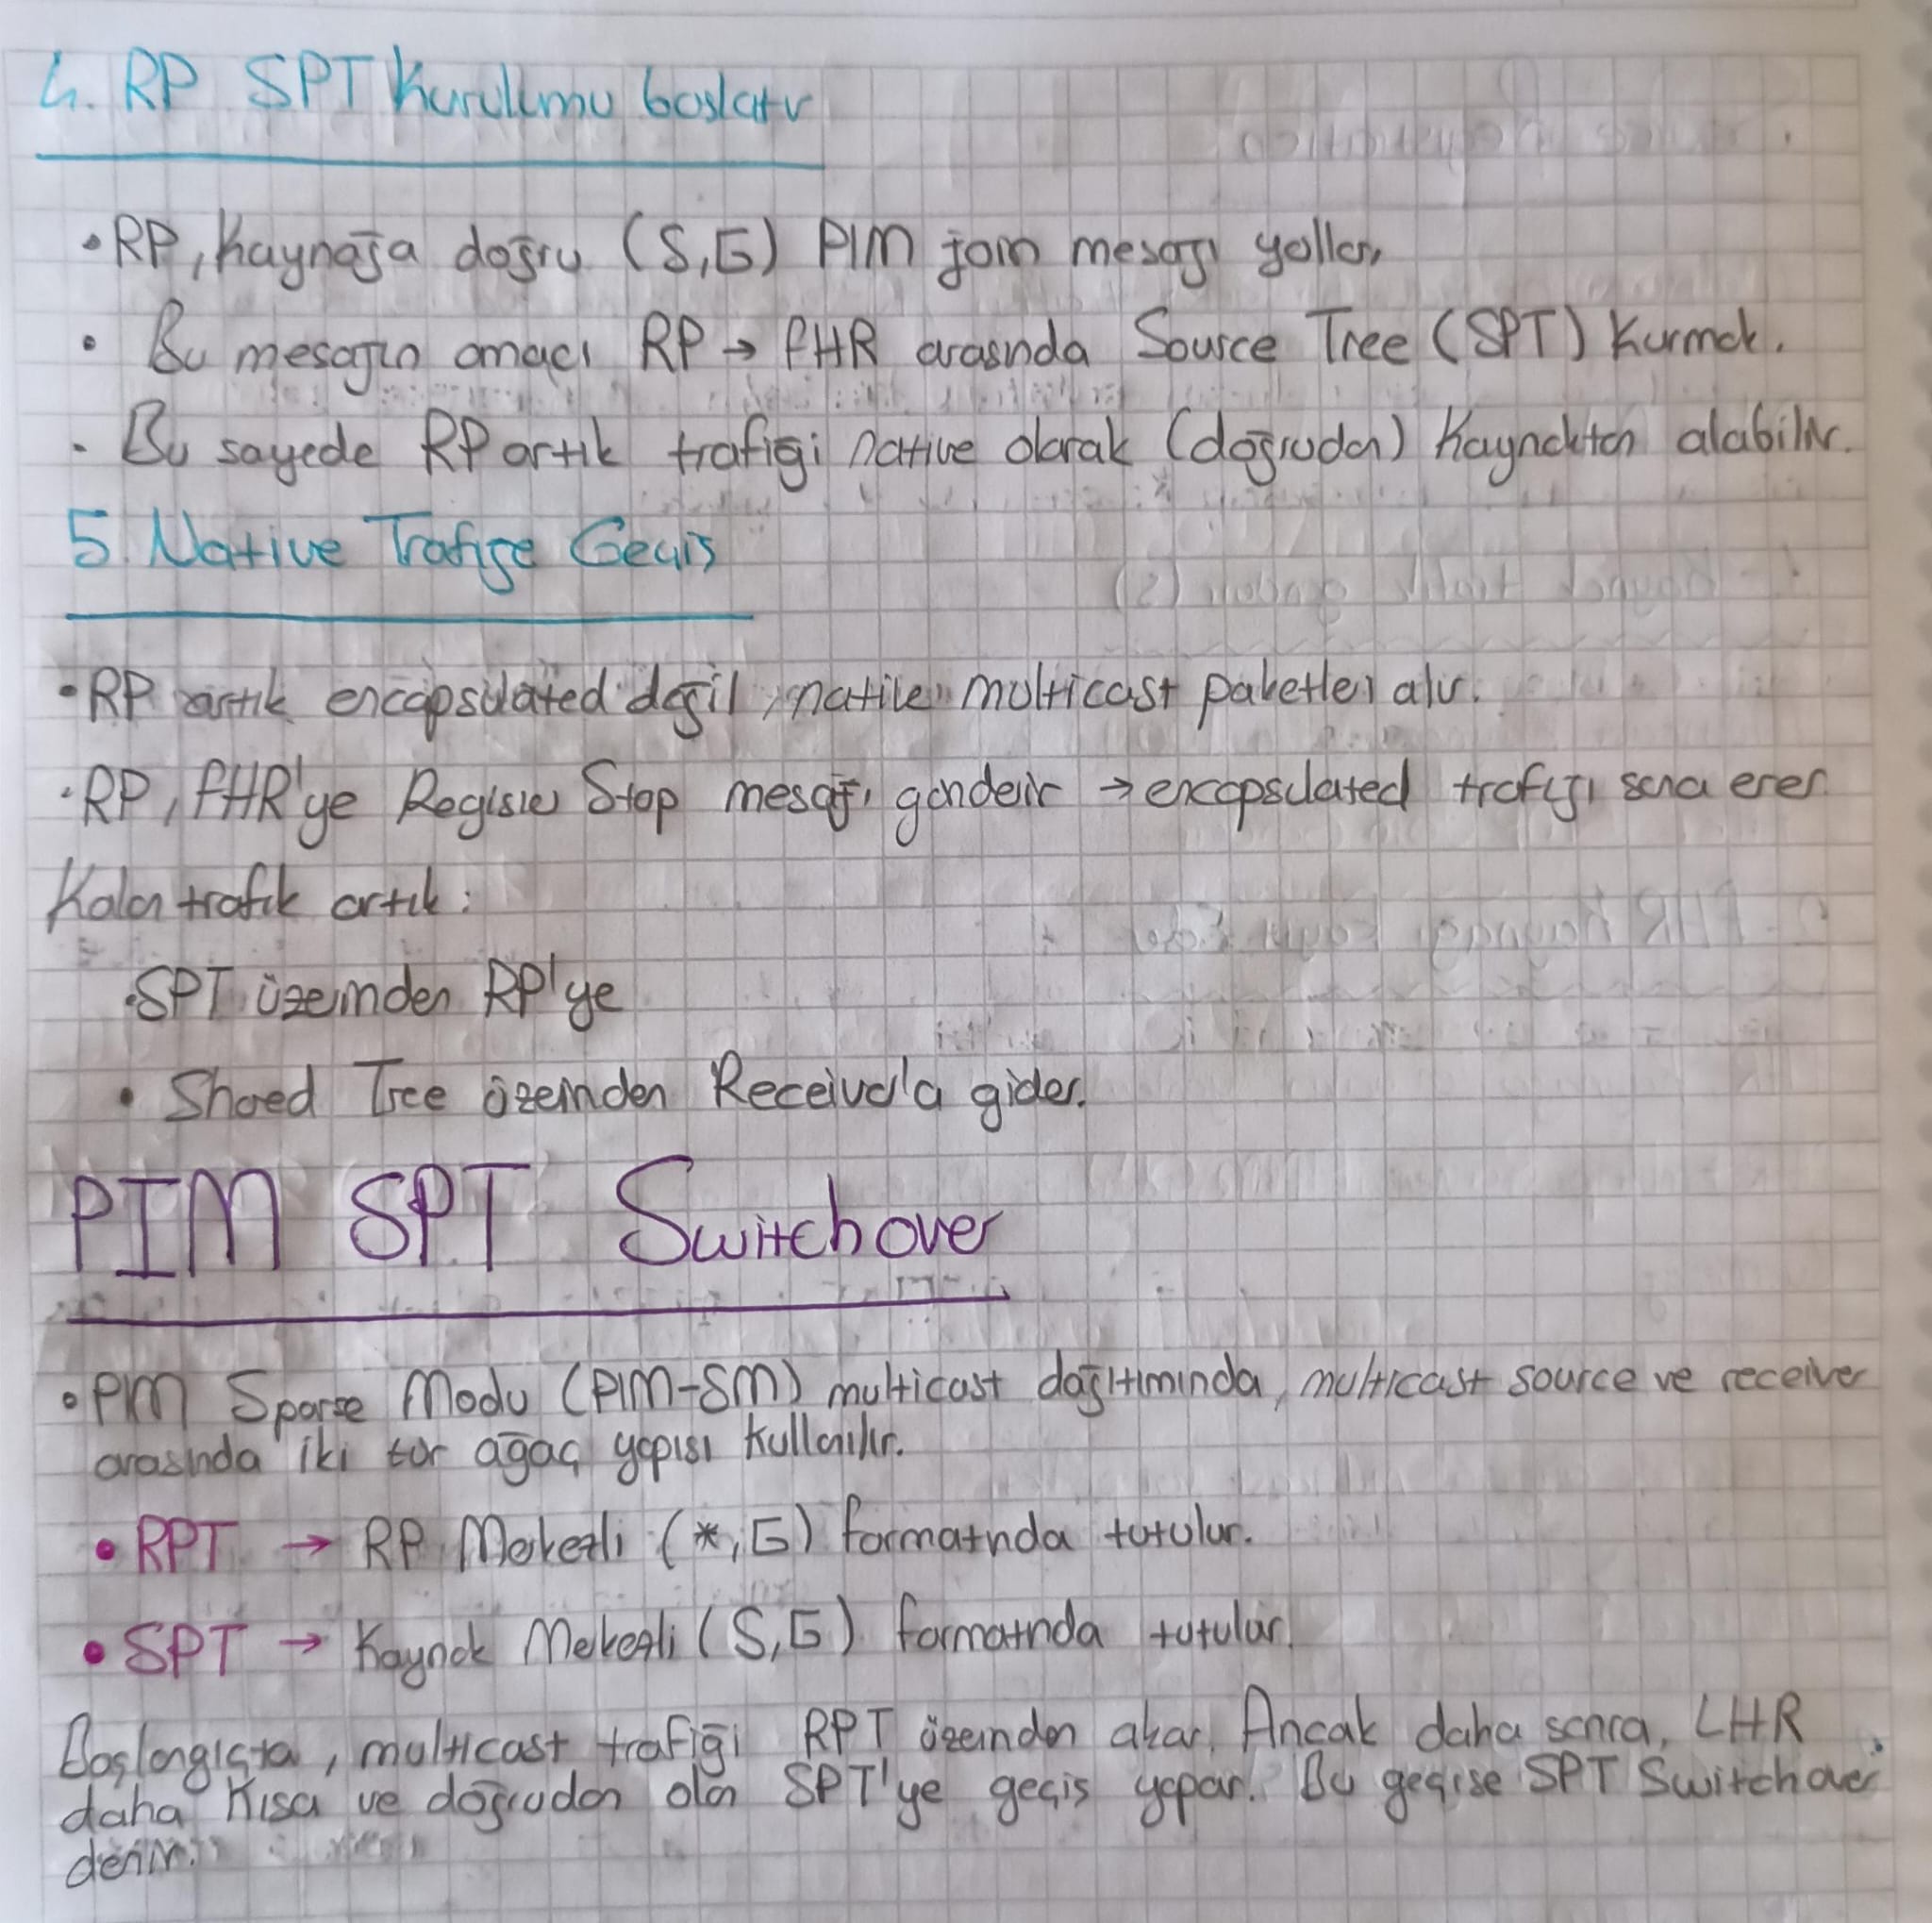 4. RP SPT Kurulumu başlatır
• RP, Kaynağa doğru (S,G) PIM join mesajı yollar.
• Bu mesajın amacı RP → FHR arasında Source Tree (SPT) Kurmak.
• Bu sayede RP artık trafiği native olarak (doğrudan) Kaynaktan alabilir.
5. Native Trafiğe Geçiş
• RP artık encapsulated değil, native multicast paketleri alır.
• RP, FHR'ye Register Stop mesajı gönderir → encapsulated trafiği sona erer
Kalan trafik artık:
• SPT üzerinden RP'ye
• Shared Tree üzerinden Receiver'a gider.
PIM SPT Switchover
• PIM Sparse Modu (PIM-SM) multicast dağıtımında, multicast source ve receiver
arasında iki tür ağaç yapısı Kullanılır.
• RPT → RP Merkezli (*,G) formatında tutulur.
• SPT → Kaynak Merkezli (S,G) formatında tutulur.
Başlangıçta, multicast trafiği RPT üzerinden akar. Ancak daha sonra, LHR
daha Kısa ve doğrudan olan SPT'ye geçiş yapar. Bu geçişe SPT Switchover
denir.